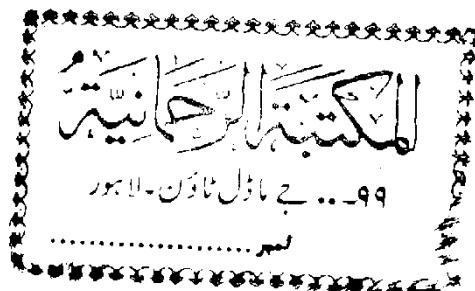 المكتبة الرحمانية
۹۹۔.. جے ماڈل ٹاؤن۔ لاہور
نمبر ......................